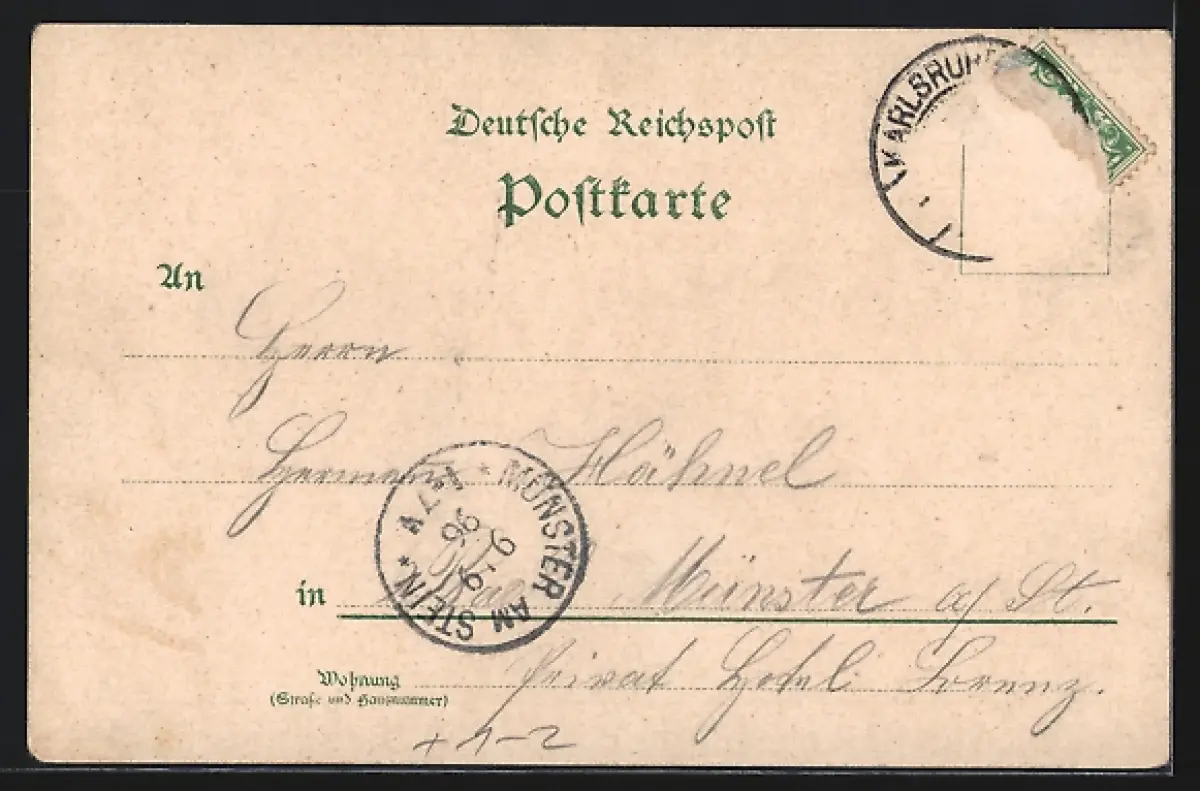 Deutsche Reichspost
Postkarte
KARLSRUH
An
Herrn
Hermann Hähnel
MÜNSTER AM STEIN
9.9
96
in Bad Münster a/ St.
Wohnung
(Straße und Hausnummer)
Privat Hotel Lorenz.
+1-2